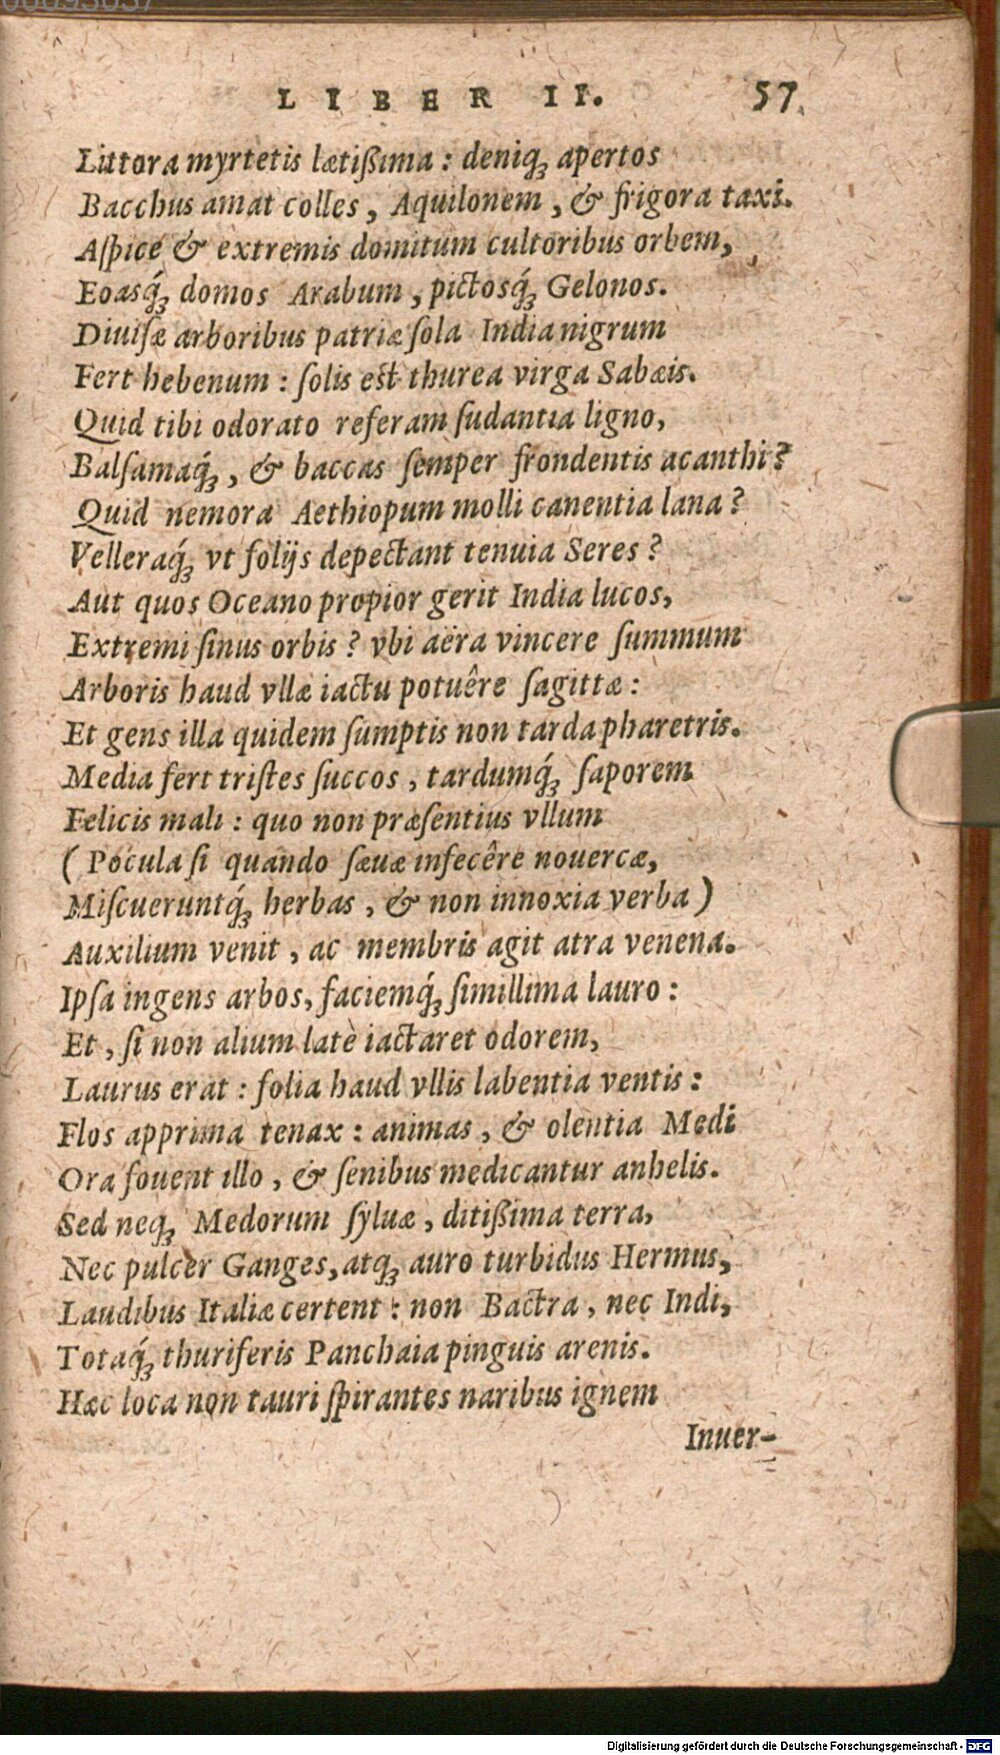 LIBER II. 57
Littora myrtetis lætißima : deniq́ꝫ apertos
Bacchus amat colles, Aquilonem, & frigora taxi.
Aſpice & extremis domitum cultoribus orbem,
Eoasq́ꝫ domos Arabum, pictosq́ꝫ Gelonos.
Diuiſæ arboribus patriæ ſola India nigrum
Fert hebenum : ſolis est thurea virga Sabæis.
Quid tibi odorato referam ſudantia ligno,
Balſamaq́ꝫ, & baccas ſemper frondentis acanthi?
Quid nemora Aethiopum molli canentia lana?
Velleraq́ꝫ vt folijs depectant tenuia Seres?
Aut quos Oceano propior gerit India lucos,
Extremi ſinus orbis? vbi aëra vincere ſummum
Arboris haud vllæ iactu potuêre ſagittæ :
Et gens illa quidem ſumptis non tarda pharetris.
Media fert triſtes ſuccos, tardumq́ꝫ ſaporem
Felicis mali : quo non præſentius vllum
(Pocula ſi quando ſæuæ infecêre nouercæ,
Miſcueruntq́ꝫ herbas, & non innoxia verba)
Auxilium venit, ac membris agit atra venena.
Ipſa ingens arbos, faciemq́ꝫ ſimillima lauro :
Et, ſi non alium latè iactaret odorem,
Laurus erat : folia haud vllis labentia ventis :
Flos apprima tenax : animas, & olentia Medi
Ora fouent illo, & ſenibus medicantur anhelis.
Sed neqꝫ Medorum ſyluæ, ditißima terra,
Nec pulcer Ganges, atqꝫ auro turbidus Hermus,
Laudibus Italiæ certent : non Bactra, nec Indi,
Totaq́ꝫ thuriferis Panchaia pinguis arenis.
Hæc loca non tauri ſpirantes naribus ignem
Inuer-
Digitalisierung gefördert durch die Deutsche Forschungsgemeinschaft - DFG